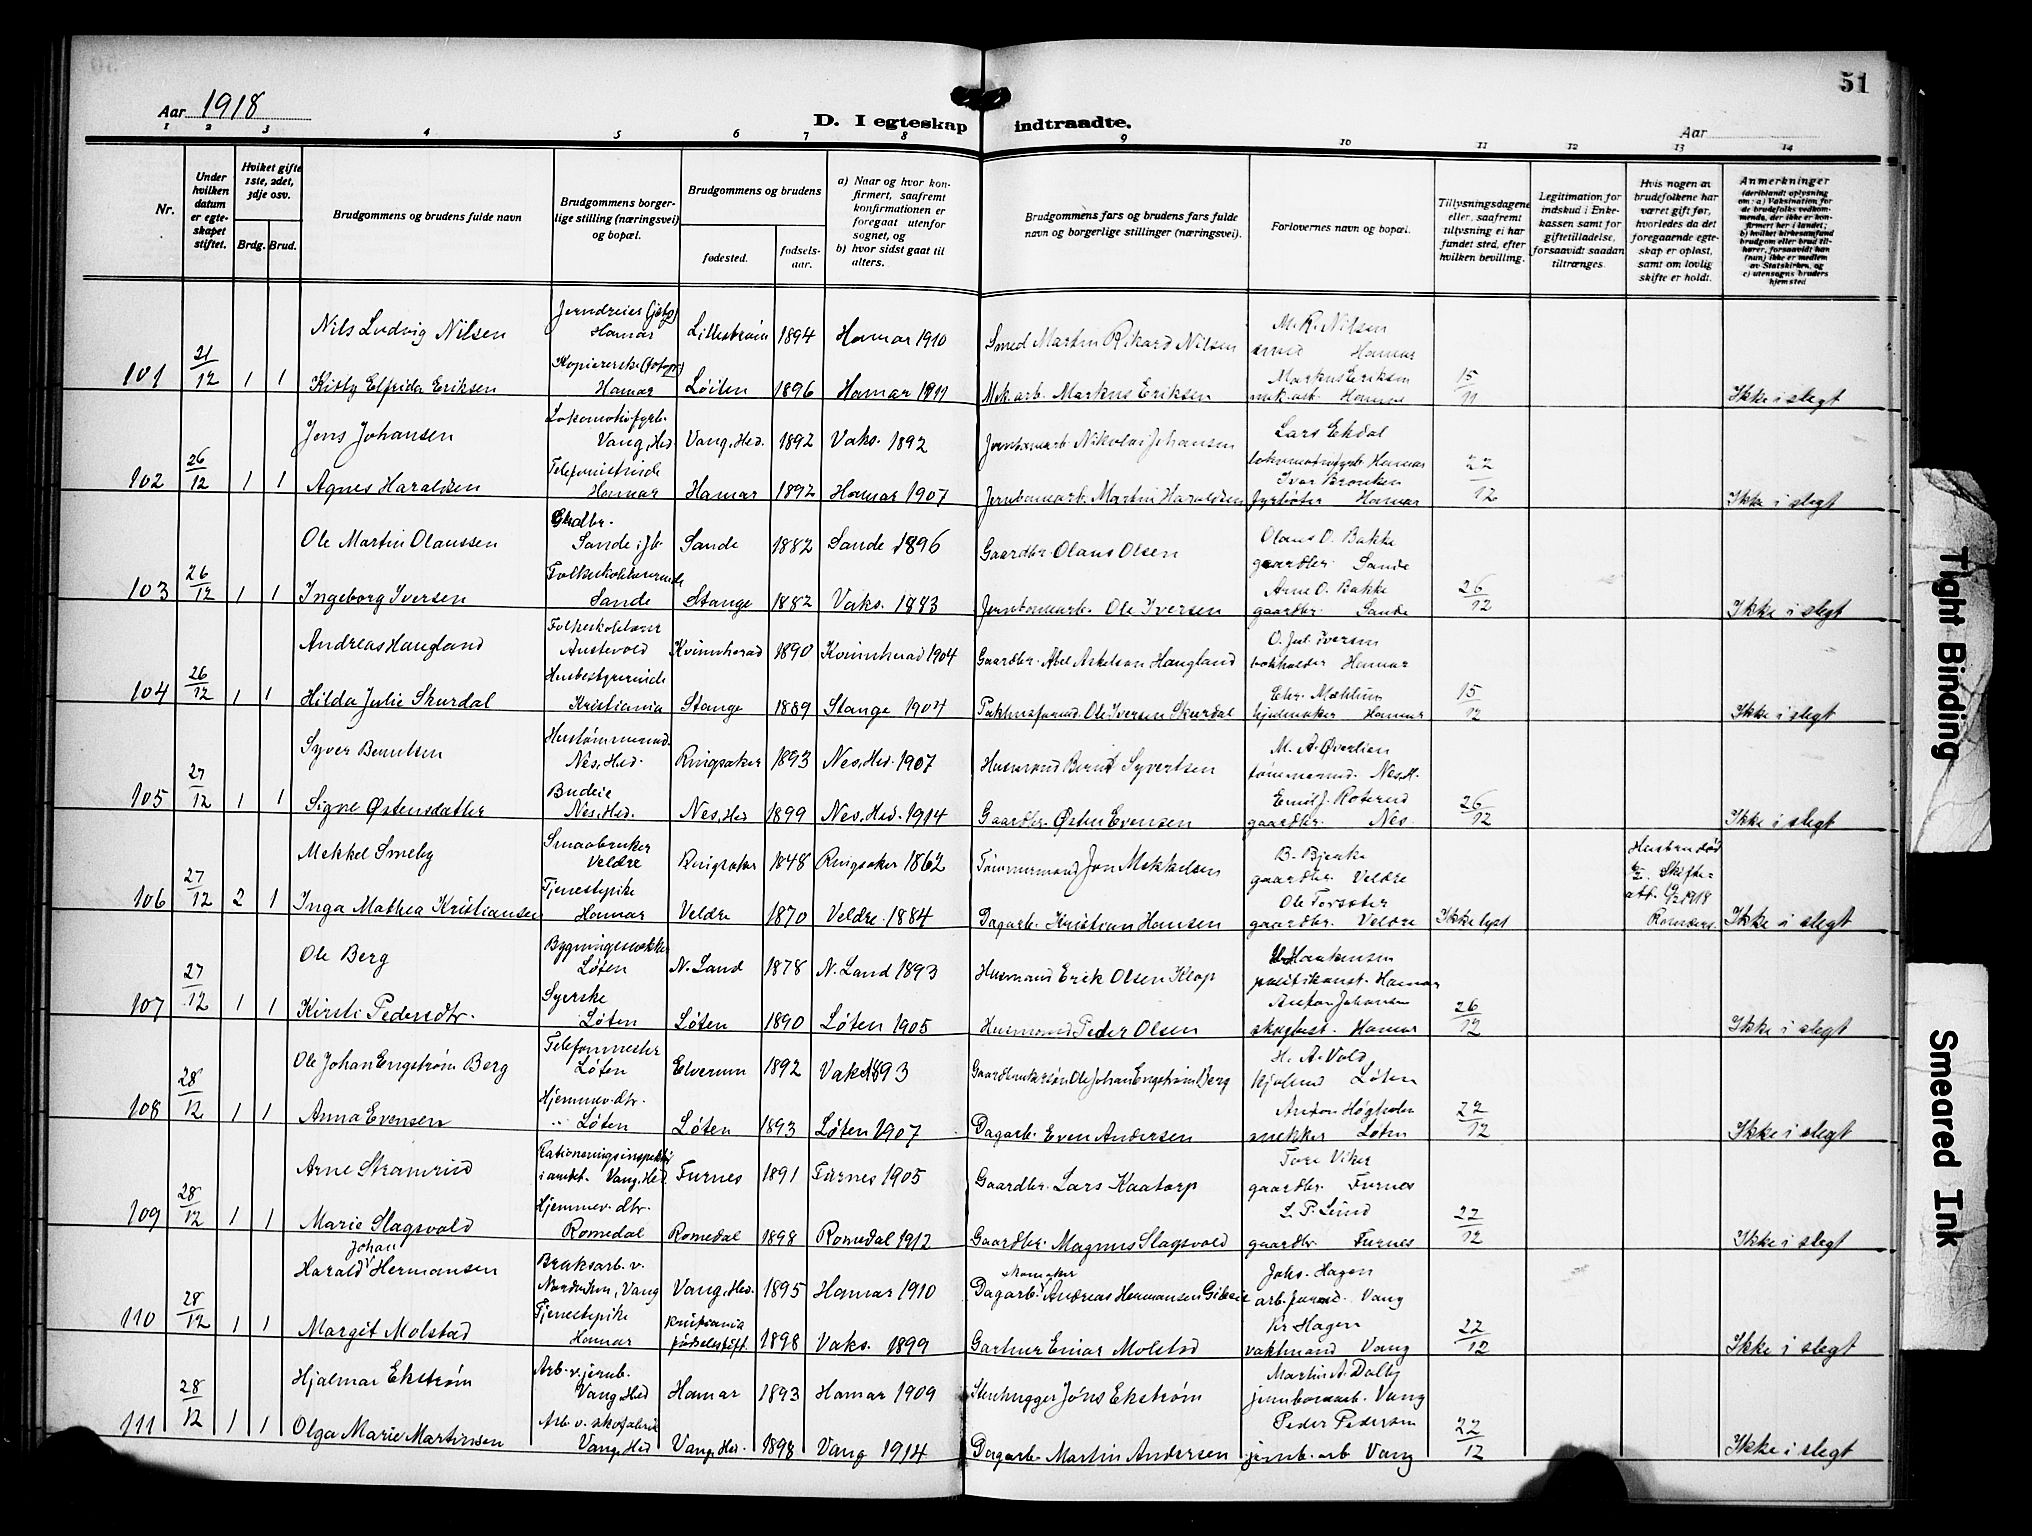 51
Aar 1918
D. I egteskap indtraadte.
Aar
1 2 3 4 5 6 7 8 9 10 11 12 13 14
Nr.
Under hvilken datum er egteskapet stiftet.
Hvilket gifte 1ste, 2det, 3dje osv.
Brdg. Brud.
Brudgommens og brudens fulde navn
Brudgommens borgerlige stilling (næringsvei) og bopæl.
Brudgommens og brudens
fødested.
fødselsaar.
a) Naar og hvor konfirmert, saafremt konfirmationen er foregaat utenfor sognet, og
b) hvor sidst gaat til alters.
Brudgommens fars og brudens fars fulde navn og borgerlige stillinger (næringsvei).
Forlovernes navn og bopæl.
Tillysningsdagene eller, saafremt tillysning ei har fundet sted, efter hvilken bevilling.
Legitimation for indskud i Enkekassen samt for giftetilladelse, forsaavidt saadan tiltrænges.
Hvis nogen av brudefolkene har været gift før, hvorledes da det foregaaende egteskap er opløst, samt om lovlig skifte er holdt.
Anmerkninger
Nils Ludvig Nilsen Hamar Lillestrøm 1894 Hamar 1910 Smed Martin Rikard Nilsen M. R. Nilsen smed Hamar
101 21/12 1 1 Kitty Elfrida Eriksen Hamar Løiten 1896 Hamar 1911 Mek.arb. Markus Eriksen Markus Eriksen mek.arb. Hamar 15/11 Ikke i slegt
Jens Johansen Lokomotivfyrb. Vang, Hed. Vang, Hed. 1892 Vaks. 1892 Jernbanearb. Nikolai Johansen Lars Ekdal lokomotivfyrb. Hamar
102 26/12 1 1 Agnes Haraldsen Telefonistinde Hamar Hamar 1892 Hamar 1907 Jernbanearb. Martin Haraldsen Ivar Bronken fyrbøter Hamar 22/12 Ikke i slegt
Ole Martin Olaussen Gaardbr. Sande i Jb. Sande 1882 Sande 1896 Gaardbr. Olaus Olsen Olaus O. Bakke gaardbr. Sande
103 26/12 1 1 Ingeborg Iversen Folkeskolelærerinde Sande Stange 1882 Vaks. 1883 Jernbanearb. Ole Iversen Arne O. Bakke gaardbr. Sande 26/12 Ikke i slegt
Andreas Haugland Folkeskolelærer Austevold Kvinnherad 1890 Kvinnherad 1904 Gaardbr. Abel Askelsen Haugland O. Jul. Iversen bokholder Hamar
104 26/12 1 1 Hilda Julie Skurdal Husbestyrerinde Kristiania Stange 1889 Stange 1904 Pakhusformd. Ole Iversen Skurdal Chr. Mæhlum hjulmaker Hamar 15/12 Ikke i slegt
Syver Berntsen Hustømmermd. Nes, Hed. Ringsaker 1893 Nes, Hed. 1907 Husmand Bernt Syvertsen M. A. Øverlien tømmermd. Nes, H.
105 27/12 1 1 Signe Østensdatter Budeie Nes, Hed. Nes, Hed 1899 Nes, Hed. 1914 Gaardbr. Østen Evensen Emil J. Roterud gaardbr. Nes. 26/12 Ikke i slegt
Mekkel Smeby Smaabruker Veldre Ringsaker 1848 Ringsaker 1862 Tømmermand Jon Mekkelsen B. Bjerke gaardbr. Veldre Skifteatt. 1918
106 27/12 2 1 Inga Mathea Kristiansen Tjenestepike Hamar Veldre 1870 Veldre 1884 Dagarb. Kristian Hansen Ole Torsæter gaardbr. Veldre Ikke lyst Ikke i slegt
Ole Berg Løten N. Land 1878 N. Land 1893 Husmand Erik Olsen Klop Haakensen politikonst. Hamar
107 27/12 1 1 Kirsti Pedersdtr. Syerske Løten Løten 1890 Løten 1905 Husmand Peder Olsen Anton Johansen Hamar 26/12 Ikke i slegt
Ole Johan Engstrøm Berg Telefonmester Løten Elverum 1892 Vaks 1893 Gaardbrukersøn Ole Johan Engstrøm Berg H. A. Vold hjulmd Løten
108 28/12 1 1 Anna Evensen Hjemmev. dtr. Løten Løten 1893 Løten 1907 Dagarb. Even Andersen Anton Høgholm snekker Løten 22/12 Ikke i slegt
Arne Strømrud Rationeringsinspektør i amtet. Vang, Hed. Furnes 1891 Furnes 1905 Gaardbr. Lars Kaatorp Tore Viker gaardbr. Furnes
109 28/12 1 1 Marie Slagsvold Hjemmev. dtr. Romedal Romedal 1898 Romedal 1912 Gaardbr. Magnus Slagsvold L. P. Lund gaardbr. Furnes 22/12 Ikke i slegt
Harald Johan Hermansen Bruksarb. v. Vang Vang, Hed. 1895 Hamar 1910 Dagarb. skomaker Andreas Hermansen Johs. Hagen arb.formd. Vang
110 28/12 1 1 Margit Molstad Tjenestepike Hamar Kristiania fødselsstift. 1898 Vaks. 1899 Gartner Einar Molstad Kr Hagen vaktmand Vang 22/12 Ikke i slegt
Hjalmar Ekstrøm Arb. v. jernb. Vang, Hed Hamar 1893 Hamar 1909 Stenhugger Jöns Ekstrøm Martin A. Dalby jernbanearb. Vang
111 28/12 1 1 Olga Marie Martinsen Arb. v. skofabrik Vang, Hed Vang, Hed. 1898 Vang 1914 Dagarb. Martin Andersen Peder Pedersen jernb. arb Vang 22/12 Ikke i slegt
Tight Binding
Smeared Ink